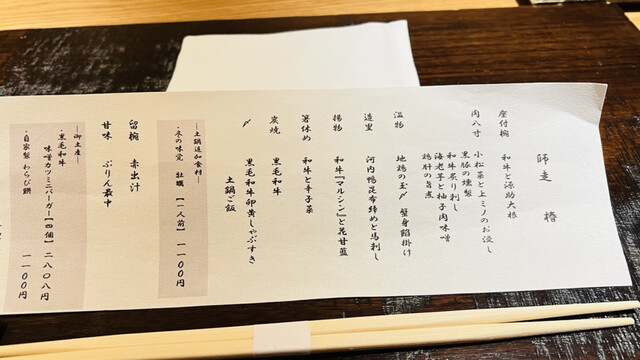 師走 椿
座付椀 和牛と源助大根
肉八寸 小松菜と上ミノのお浸し
黒豚の燻製
和牛炙り刺し
海老芋と柚子肉味噌
鶏肝の旨煮
温物 地鶏の玉〆 蟹身餡掛け
造里 河内鴨昆布締めと馬刺し
揚物 和牛『マルシン』と花甘藍
箸休め 和牛と辛子菜
炭焼 黒毛和牛
〆 黒毛和牛卵黄しゃぶすき
土鍋ご飯
―土鍋追加食材―
・冬の味覚 牡蠣 【一人前】 一一〇〇円
留椀 赤出汁
甘味 ぷりん最中
―御土産―
・黒毛和牛
味噌カツミニバーガー【四個】 二八〇八円
・自家製 わらび餅 一一〇〇円